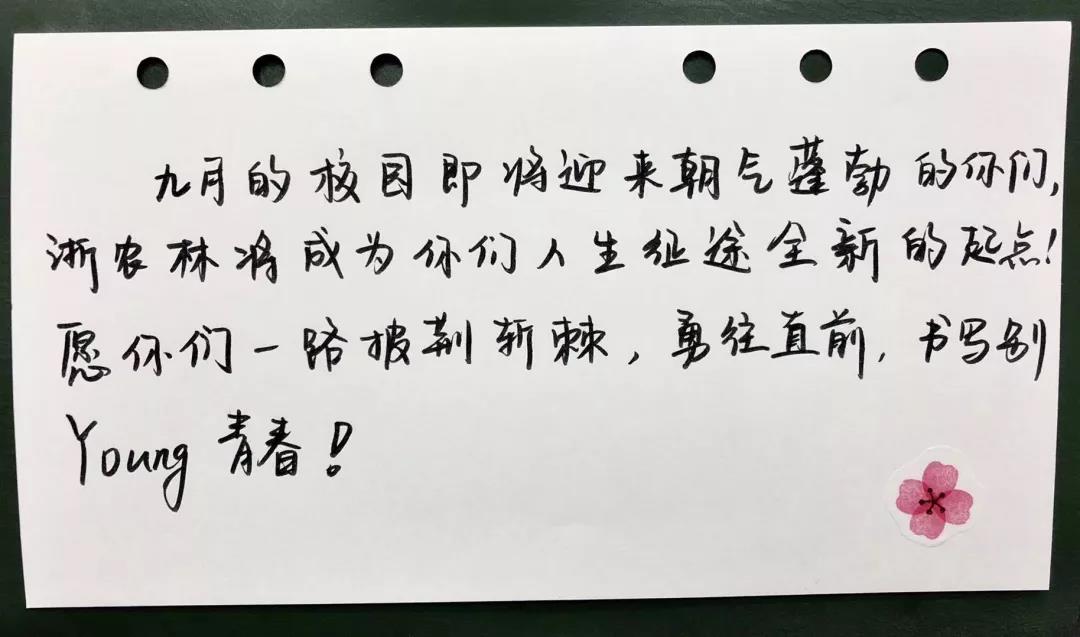 九月的校园即将迎来朝气蓬勃的你们,
浙农林将成为你们人生征途全新的起点!
愿你们一路披荆斩棘,勇往直前,书写别
Young青春!